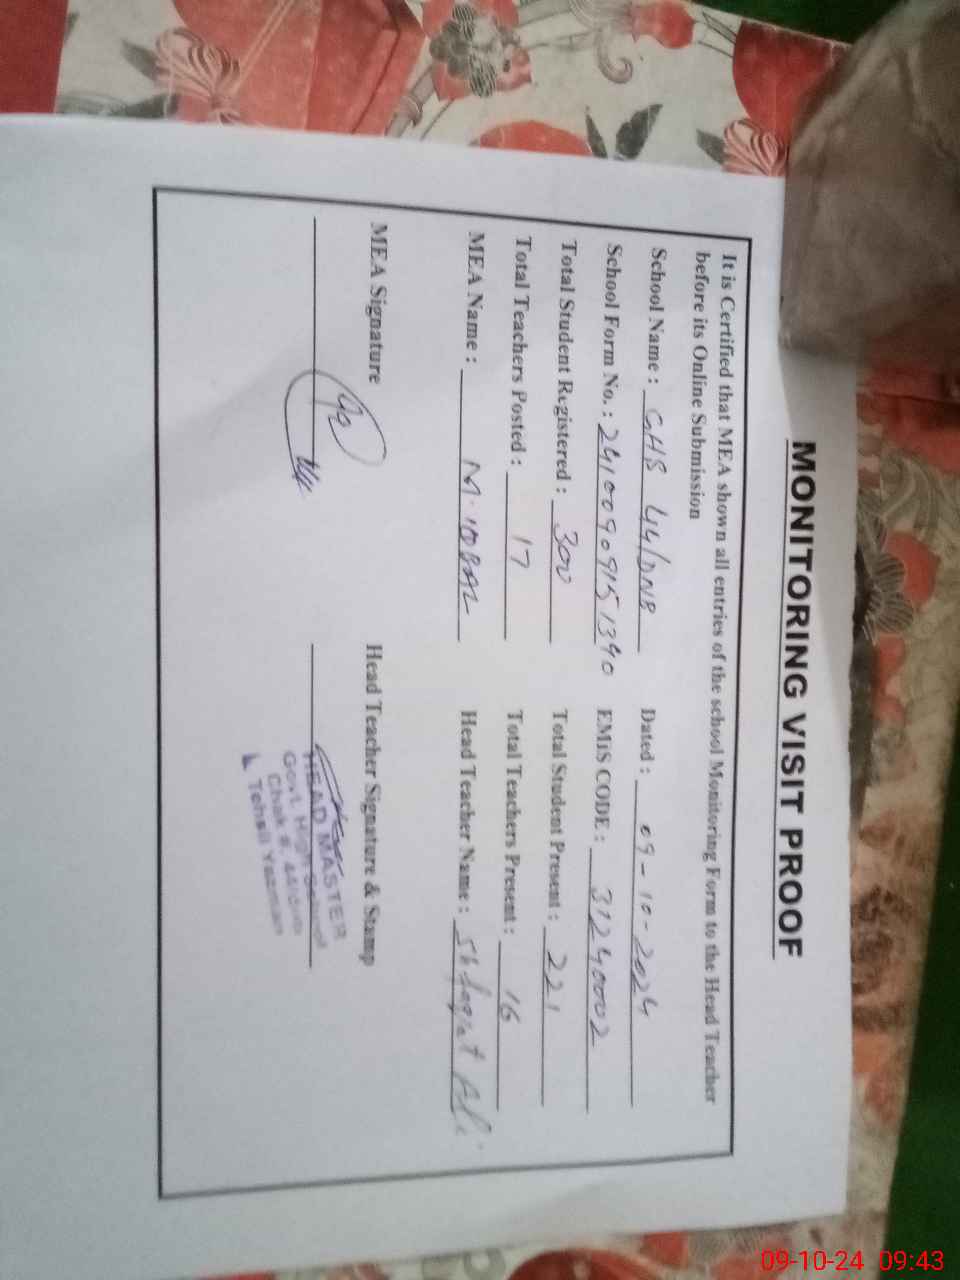 MONITORING VISIT PROOF
It is Certified that MEA shown all entries of the school Monitoring Form to the Head Teacher
before its Online Submission
School Name : GHS 44/DNB Dated : 09-10-2024
School Form No. : 2410090915 1390 EMIS CODE : 31240002
Total Student Registered : 300 Total Student Present : 221
Total Teachers Posted : 17 Total Teachers Present : 16
MEA Name : M. IQBAL Head Teacher Name : Ali
MEA Signature Head Teacher Signature & Stamp
HEAD MASTER
Govt. High School
Chak #
Tehsil Yazman
09-10-24 09:43